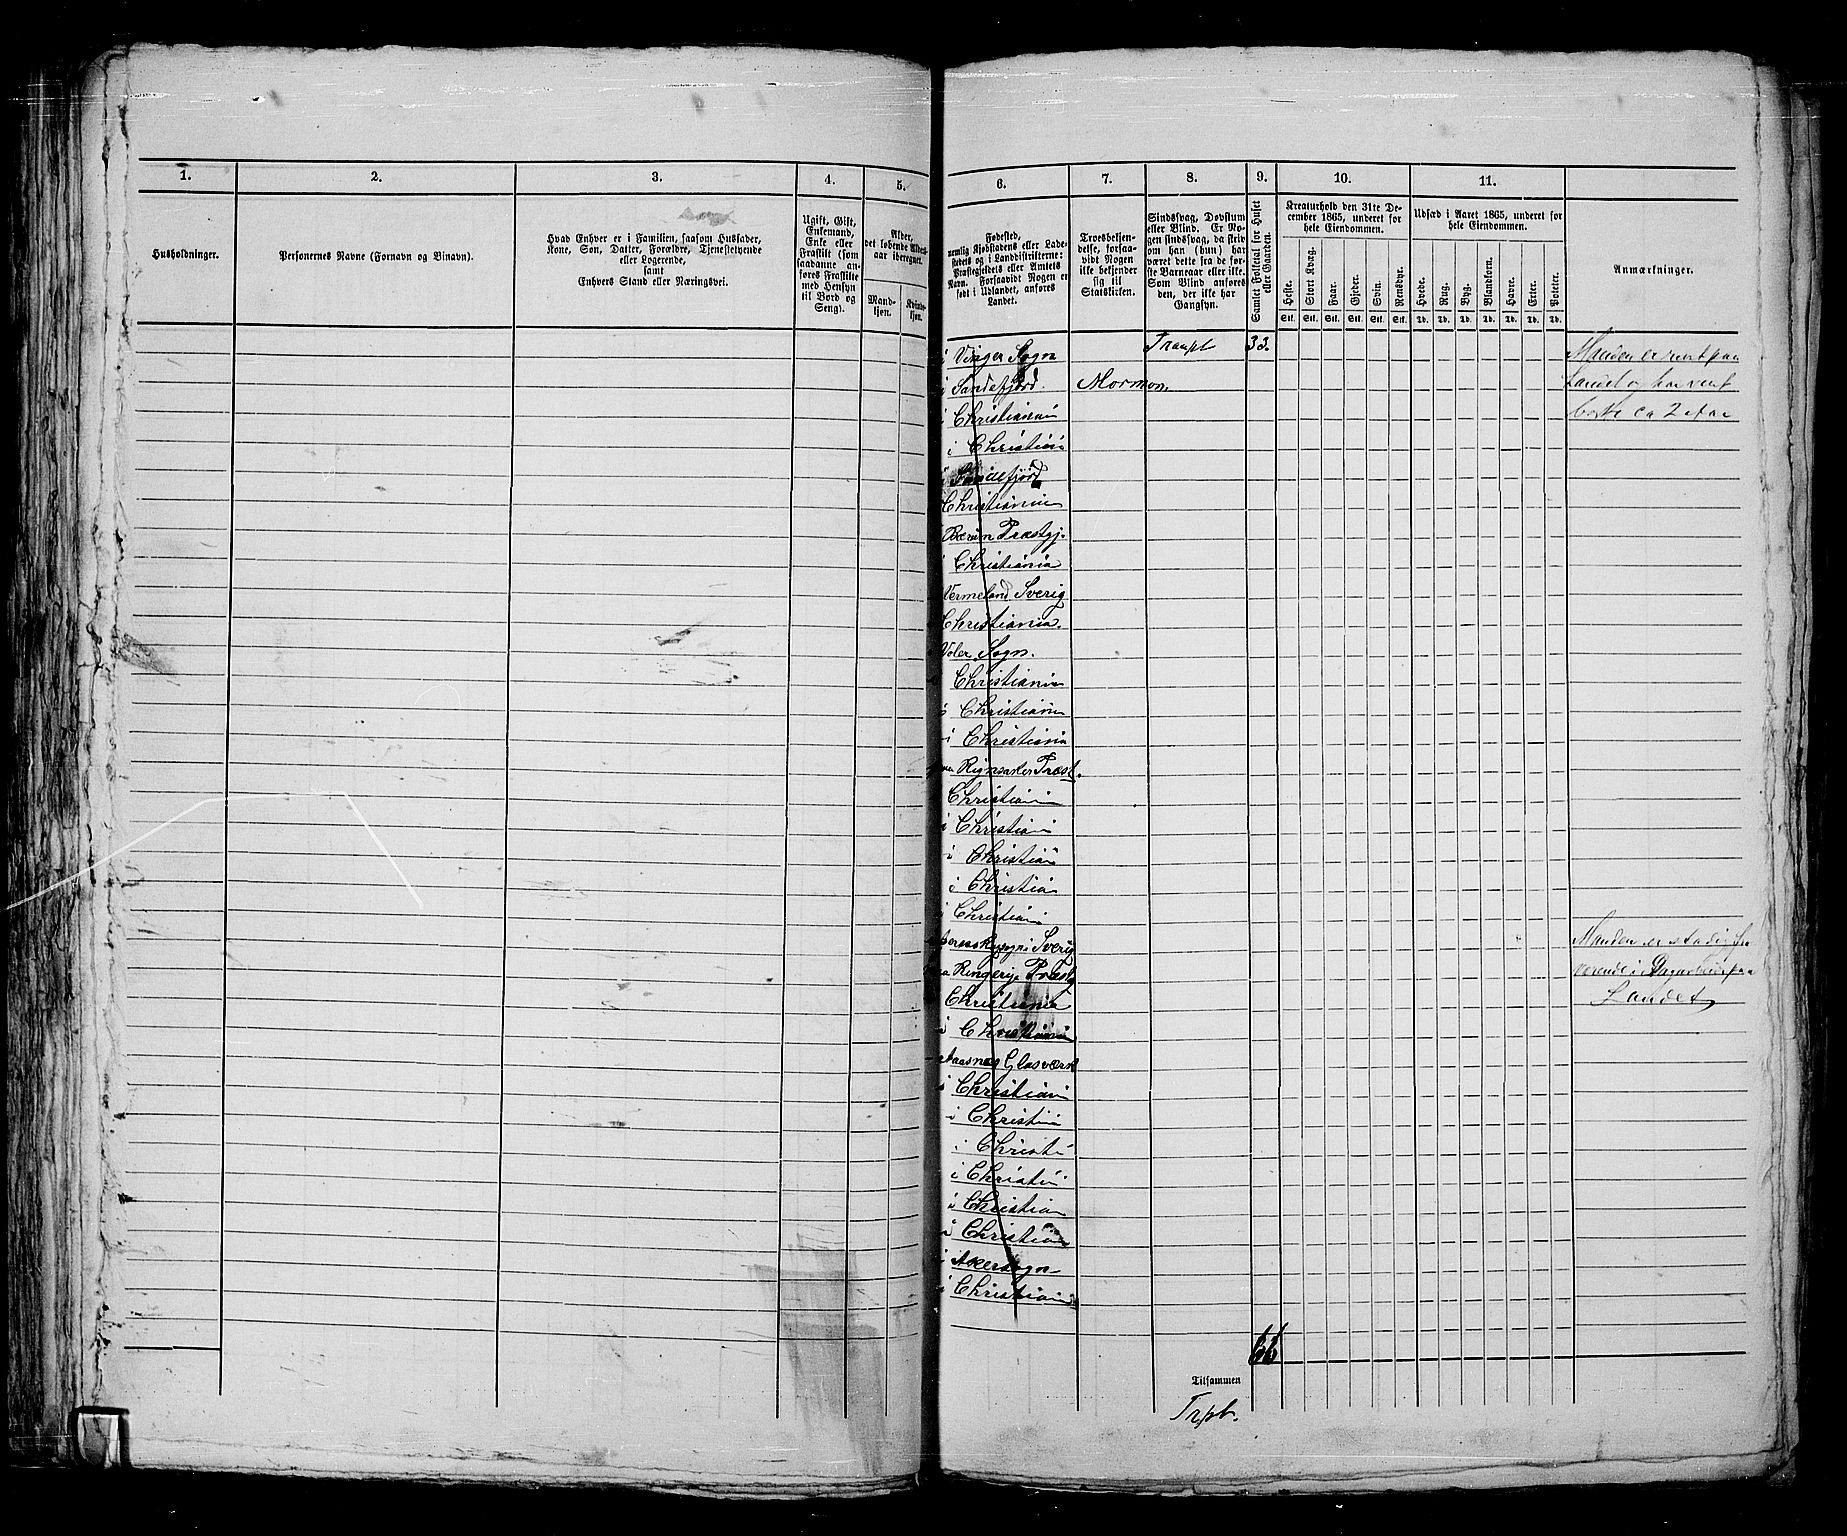 1.
2.
3.
4.
5.
Husholdninger.
Personernes Navne (Fornavn og Binavn).
Hvad Enhver er i Familien, saasom Husfader,
Kone, Søn, Datter, Forældre, Tjenestetyende
eller Logerende,
samt
Enhvers Stand eller Næringsvei.
Ugift, Gift,
Enkemand,
Enke eller
Fraskilt (som
saadanne an-
føres Fraskilte
med Hensyn
til Bord og
Seng).
Alder,
det løbende Alders-
aar iberegnet.
Mand-
kjøn.
Kvinde-
kjøn.
6.
7.
8.
9.
10.
11.
Fødested,
nemlig Kjøbstadens eller Lade-
stedets og i Landdistrikterne:
Præstegjeldets eller Amtets
Navn. Forsaavidt Nogen er
født i Udlandet, anføres
Landet.
Troesbekjen-
delse, forsaa-
vidt Nogen
ikke bekjender
sig til
Statskirken.
Sindssvag, Døvstum
eller Blind. Er No-
gen sindssvag, da skriv
om han (hun) har
været dette fra de før-
ste Barneaar eller ikke.
Som Blind anføres
den, der ikke har
Gangsyn.
Samlet Folketal for Huset
eller Gaarden.
Kreaturhold den 31te De-
cember 1865, underet for
hele Eiendommen.
Heste.
Stort Kvæg.
Faar.
Gjeder.
Svin.
Rensdyr.
Stk. Stk. Stk. Stk. Stk. Stk.
Udsæd i Aaret 1865, underet for
hele Eiendommen.
Hvede.
Rug.
Byg.
Blandkorn.
Havre.
Erter.
Poteter.
Td. Td. Td. Td. Td. Td. Td.
Anmærkninger.
i Vinger Sogn Transpt 33. Manden er
i Sandefjord. Mormon. Landet og har
i Christiania ca 2
i Christiania
Sandefjord
Christiania
Bærum Præstgj.
i Christiania
Vermeland Sverig
Christiania.
Voler Sogn.
Christiania
i Christiania
i Christiania
Præst.
Christiani
i Christiani
i Christian
i Christian
i Christiani
Sverig Manden er stadig
Ringerige Præstg værende i paa
Christiania Landet
i Christiania
Glasværk
i Christiani
i Christia
i Christi
i Christi
i Christian
i Christian
i Akersogn
i Christiani
66
Tilsammen
Trpt.